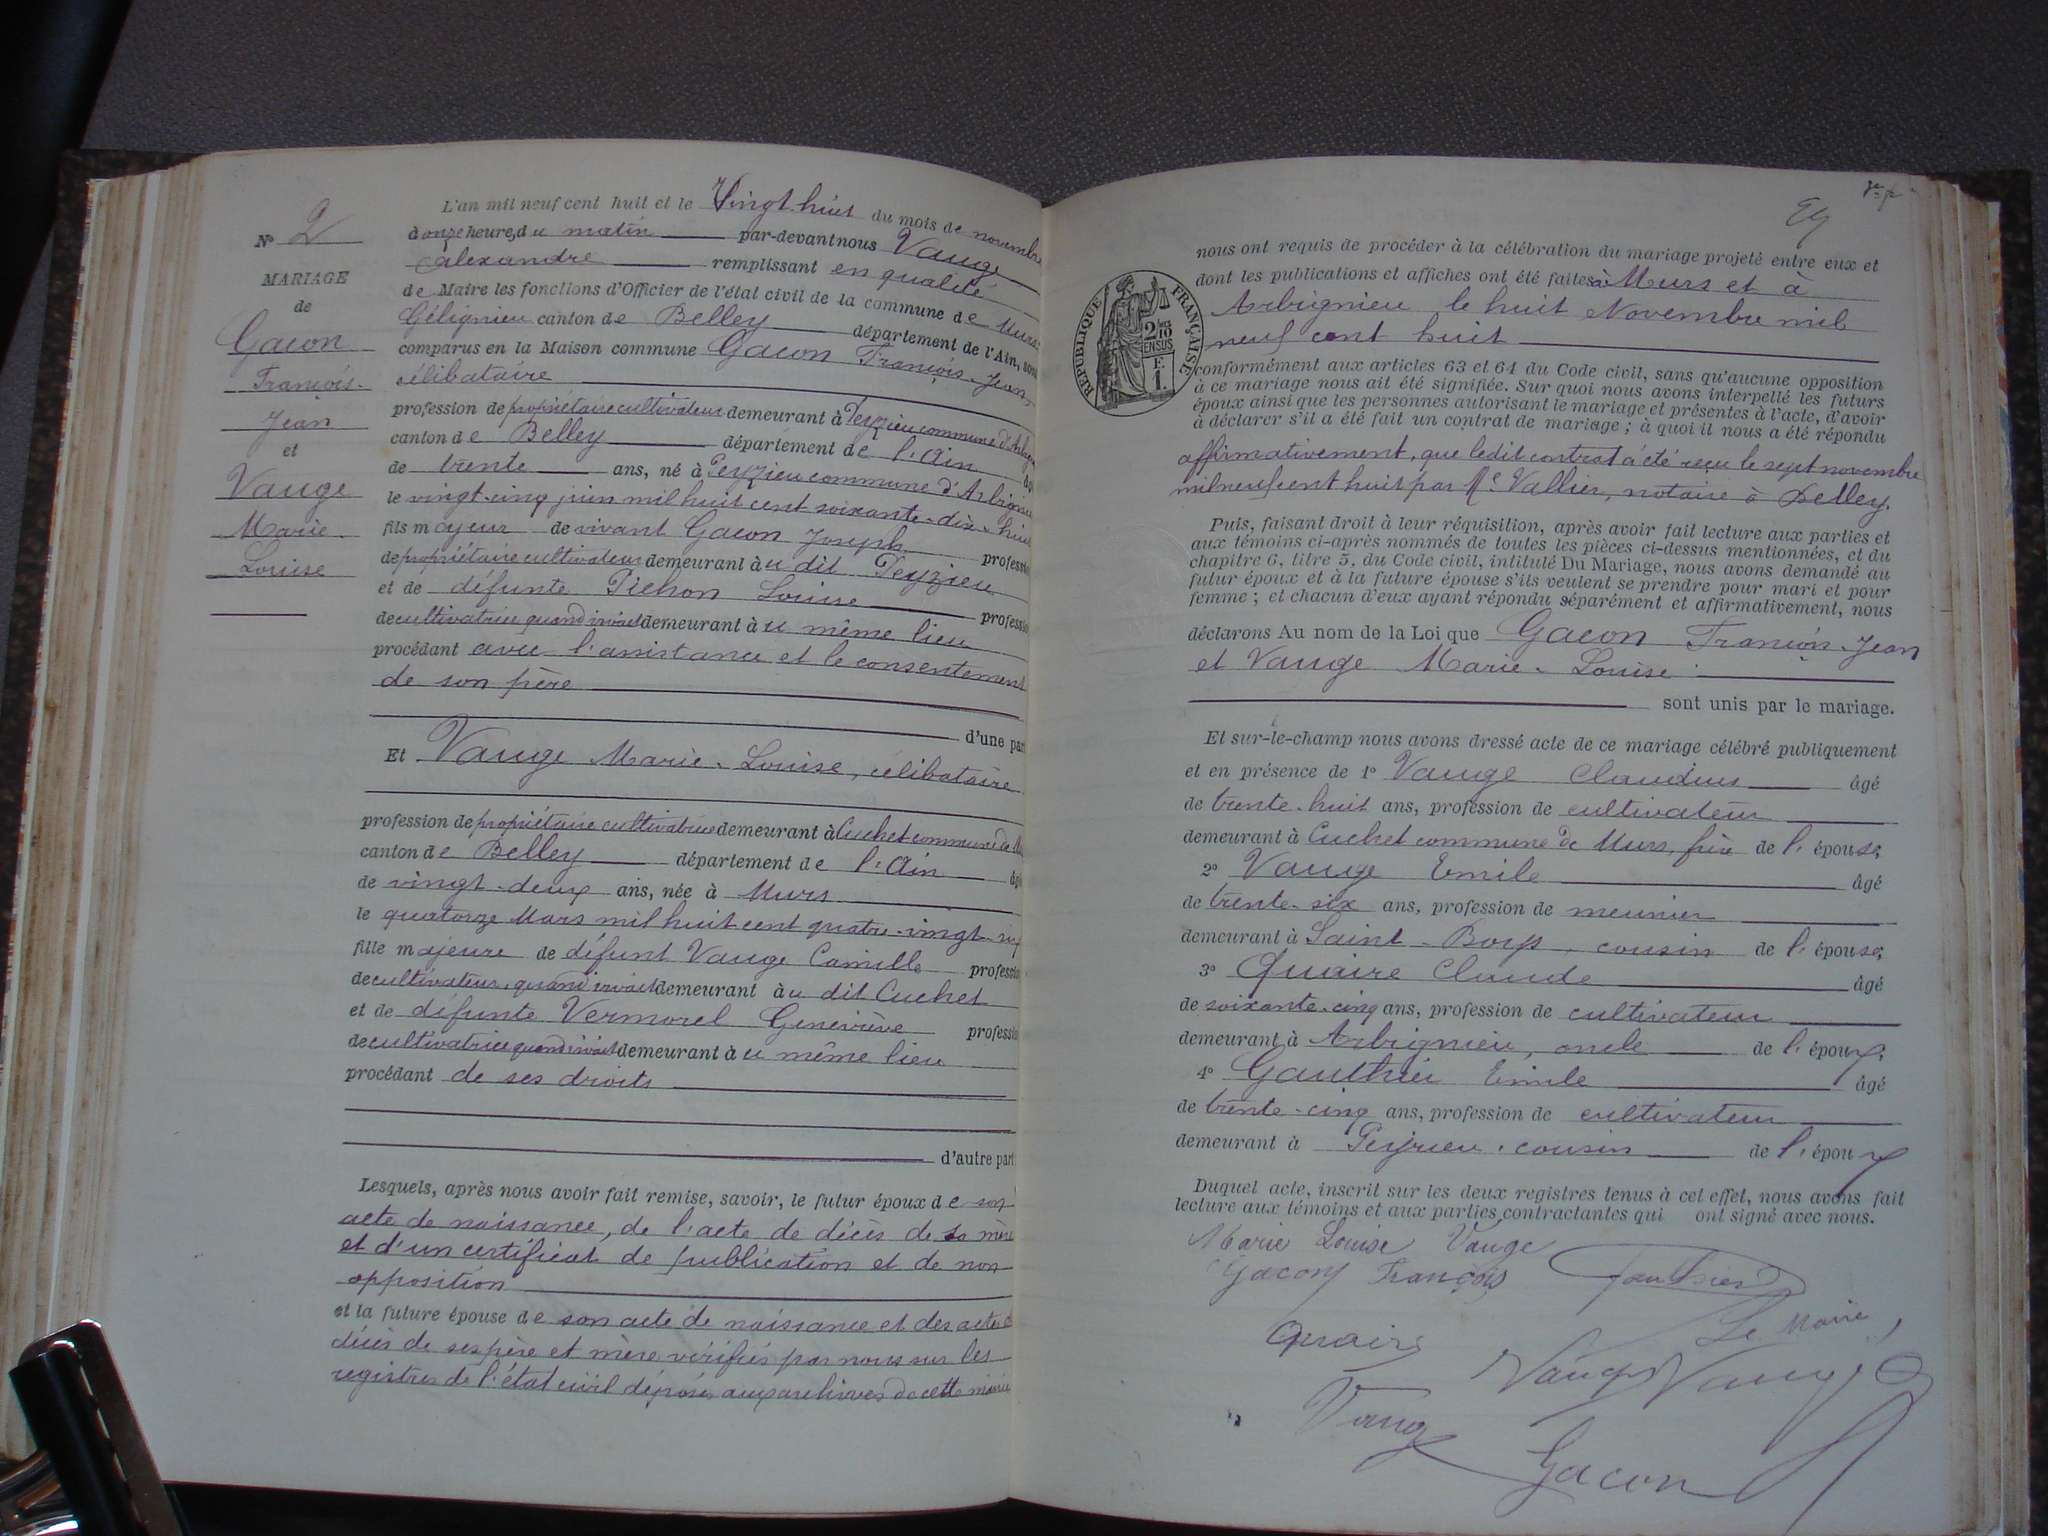 L'an mil neuf cent huit et le Vingt-huit du mois de novembre
à onze heures, du matin par-devant nous Vauge
Alexandre remplissant en qualité
de Maire les fonctions d'Officier de l'état civil de la commune de Murs
Gélignieu canton de Belley département de l'Ain, sont
comparus en la Maison commune Gacon François-Jean,
célibataire
profession de propriétaire cultivateur demeurant à Peyzieu commune d'
canton de Belley département de l'Ain
de trente ans, né à Peyzieu commune d'Arbignieu
le vingt-cinq juin mil huit cent soixante-dix-huit
fils majeur de vivant Gacon Joseph profession
de propriétaire cultivateur demeurant au dit Peyzieu
et de défunte Pichon Louise profession
de cultivatrice quand vivait demeurant au même lieu
procédant avec l'assistance et le consentement
de son père
d'une part
Et Vauge Marie-Louise, célibataire
profession de propriétaire cultivatrice demeurant à Cuchet commune de
canton de Belley département de l'Ain âgée
de vingt-deux ans, née à Murs
le quatorze Mars mil huit cent quatre-vingt-six
fille majeure de défunt Vauge Camille profession
de cultivateur, quand vivait demeurant au dit Cuchet
et de défunte Vermorel Geneviève profession
de cultivatrice quand vivait demeurant au même lieu
procédant de ses droits
d'autre part
Lesquels, après nous avoir fait remise, savoir, le futur époux de son
acte de naissance, de l'acte de décès de sa mère
et d'un certificat de publication et de non
opposition
et la future épouse de son acte de naissance et des actes de
décès de ses père et mère vérifiés par nous sur les
registres de l'état civil déposés aux archives de cette mairie
N° 2
MARIAGE
de
Gacon
François-
Jean
et
Vauge
Marie-
Louise
nous ont requis de procéder à la célébration du mariage projeté entre eux et
dont les publications et affiches ont été faites à Murs et à
Arbignieu le huit Novembre mil
neuf cent huit
conformément aux articles 63 et 64 du Code civil, sans qu'aucune opposition
à ce mariage nous ait été signifiée. Sur quoi nous avons interpellé les futurs
époux ainsi que les personnes autorisant le mariage et présentes à l'acte, d'avoir
à déclarer s'il a été fait un contrat de mariage ; à quoi il nous a été répondu
affirmativement, que ledit contrat a été reçu le sept novembre
mil neuf cent huit par Me Vallier, notaire à Belley.
Puis, faisant droit à leur réquisition, après avoir fait lecture aux parties et
aux témoins ci-après nommés de toutes les pièces ci-dessus mentionnées, et du
chapitre 6, titre 5, du Code civil, intitulé Du Mariage, nous avons demandé au
futur époux et à la future épouse s'ils veulent se prendre pour mari et pour
femme ; et chacun d'eux ayant répondu séparément et affirmativement, nous
déclarons Au nom de la Loi que Gacon François-Jean
et Vauge Marie-Louise
sont unis par le mariage.
Et sur-le-champ nous avons dressé acte de ce mariage célébré publiquement
et en présence de 1° Vauge Claudius âgé
de trente-huit ans, profession de cultivateur
demeurant à Cuchet commune de Murs, frère de l'épouse;
2° Vauge Emile âgé
de trente-six ans, profession de meunier
demeurant à Saint-Boys, cousin de l'épouse;
3° Quaire Claude âgé
de soixante-cinq ans, profession de cultivateur
demeurant à Arbignieu, oncle de l'époux;
4° Gauthier Emile âgé
de trente-cinq ans, profession de cultivateur
demeurant à Peyzieu, cousin de l'époux
Duquel acte, inscrit sur les deux registres tenus à cet effet, nous avons fait
lecture aux témoins et aux parties contractantes qui ont signé avec nous.
Marie Louise Vauge
Gacon François Gauthier
Quaire Le Maire,
Vauge Vauge
Vauge
Gacon
RÉPUBLIQUE FRANÇAISE
2/10
EN SUS
F.
1.